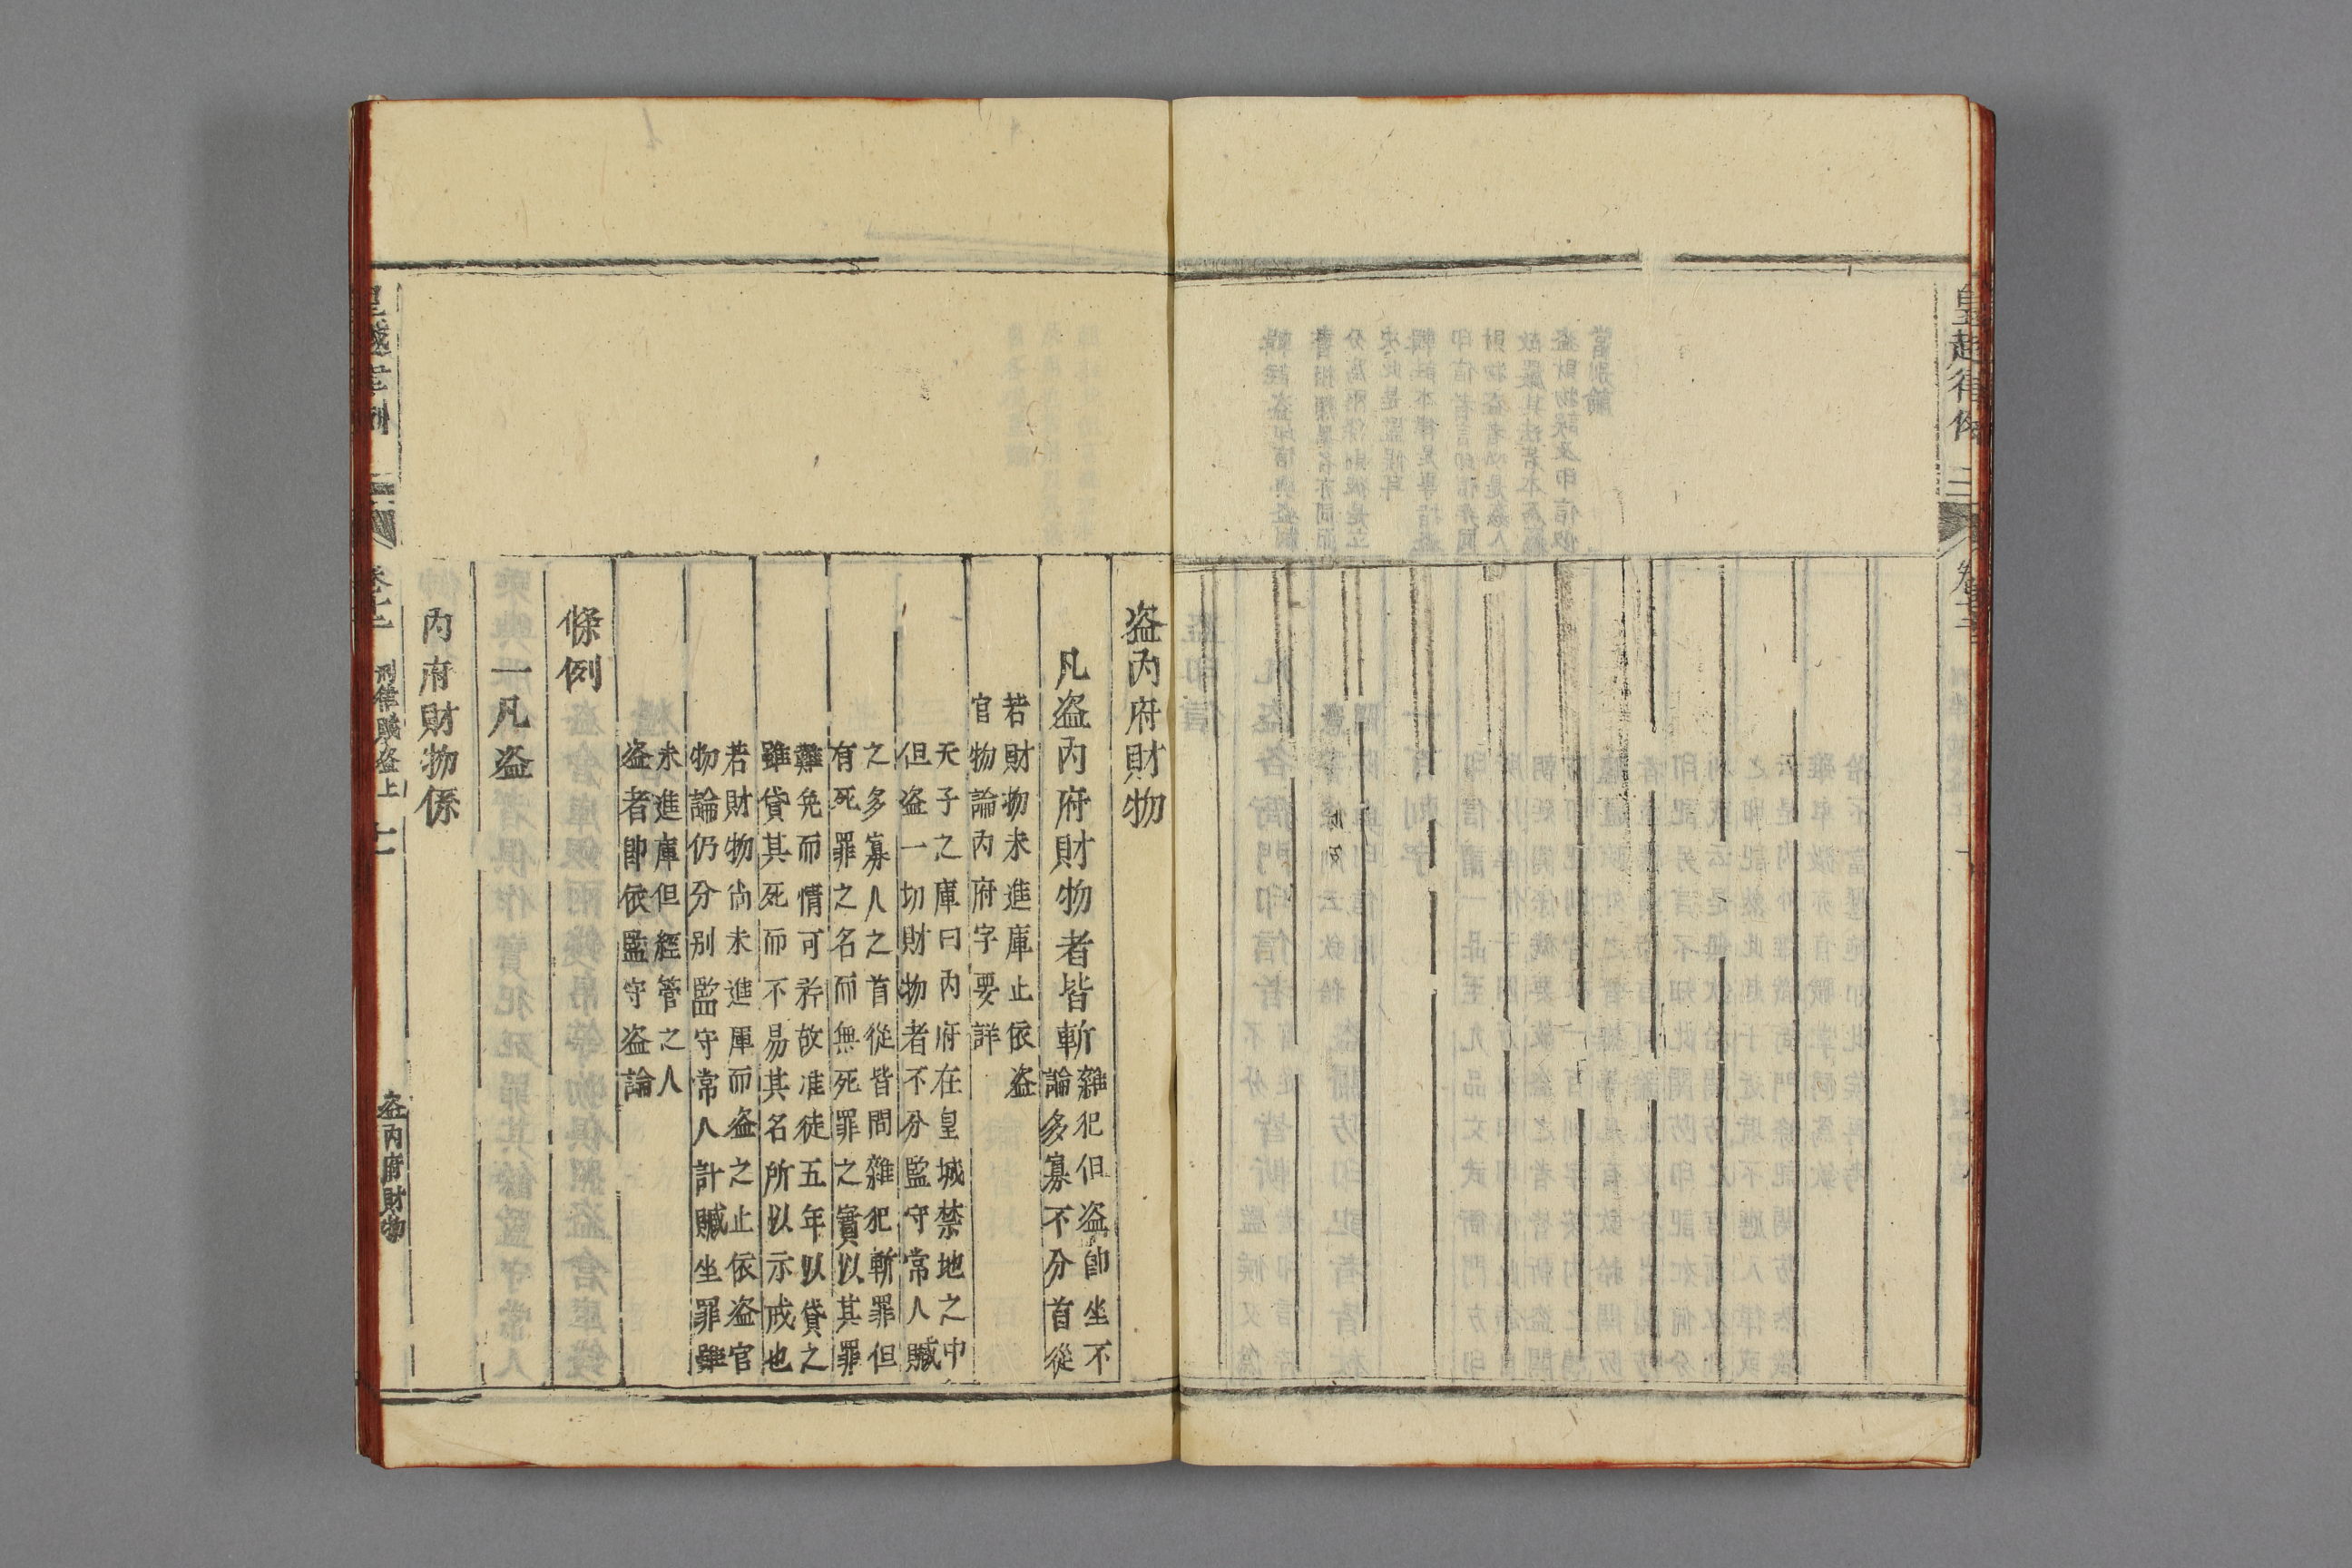 皇越律例
三
盗內府財物
凡盗內府財物者皆斬
雜犯但盗卽坐不
論多寡不分首從
若財物未進庫止依盗
官物論內府字要詳
天子之庫曰內府在皇城禁地之中
但盗一切財物者不分監守常人贓
之多寡人之首從皆問雜犯斬罪但
有死罪之名而無死罪之實以其罪
難免而情可矜故准徒五年以貸之
雖貸其死而不易其名所以示戒也
若財物尚未進庫而盗之止依盗官
物論仍分别監守常人計贓坐罪雖
未進庫但經管之人
盗者卽依監守盗論
條例
一凡盗
內府財物係
刑律賊盗上
盗內府財物